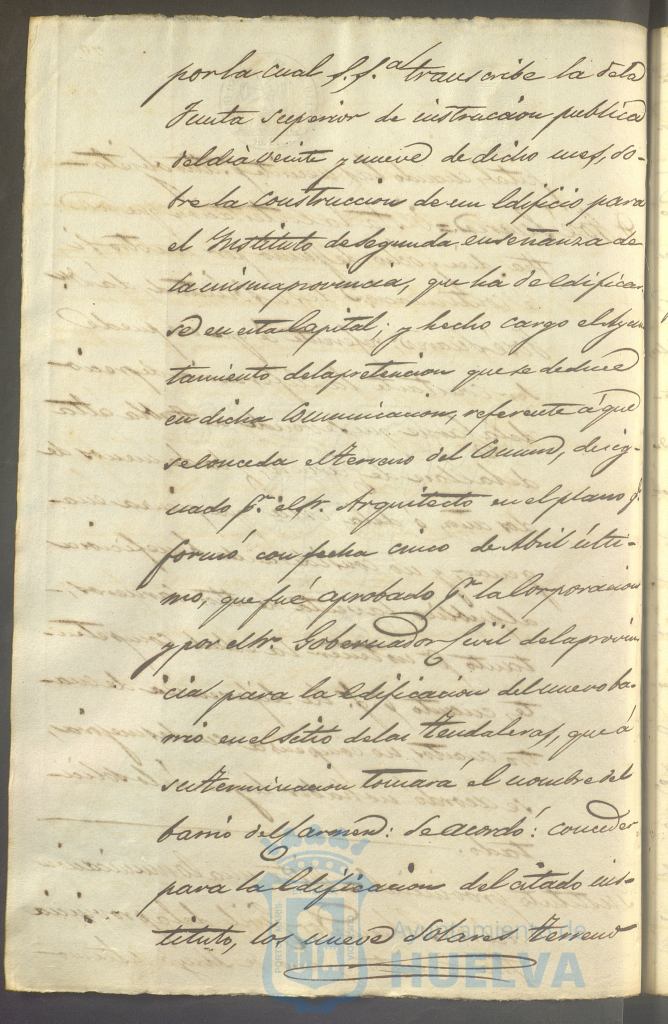 por la cual S. S.ª transcribe la de la
Junta superior de instruccion publica
del dia veinte y nueve de dicho mes, so-
bre la construccion de un Edificio para
el Instituto de segunda enseñanza de
la misma provincia, que ha de edificar-
se en esta Capital; y hecho cargo el Ayun-
tamiento de la pretencion que se deduce
en dicha Comunicacion, referente á que
se conceda el terreno del Comun, desig-
nado p.r el Sr. Arquitecto en el plano q.
formó con fecha cinco de Abril últi-
mo, que fué aprobado p.r la Corporacion
y por el Sr. Gobernador Civil de la provin-
cia para la edificacion del nuevo ba-
rrio en el Sitio de las Tendaleras, que á
su terminacion tomará el nombre del
barrio del Carmen: Se acordó: conceder
para la Edificacion del citado ins-
tituto, los nueve Solares terreno
Ayuntamiento de
HUELVA